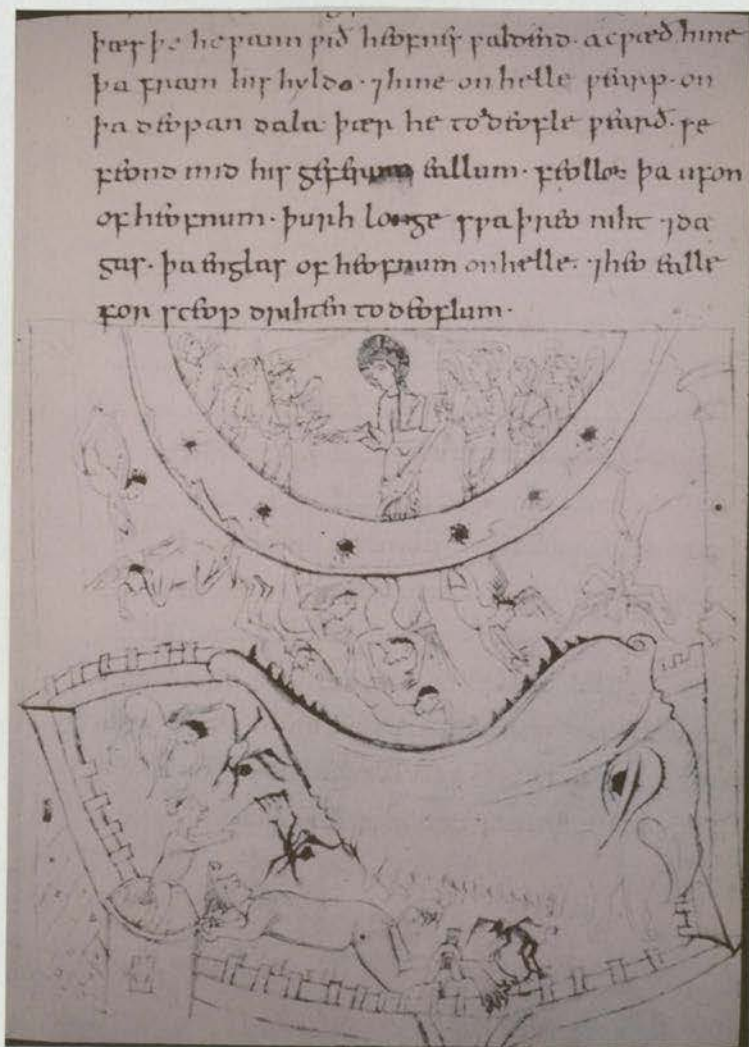 þæs þe he ƿann ƿið heofnes ƿaldend· acƿæð hine
þa fram his hyldo· ⁊ hine on helle ƿearp· on
þa deopan dala þær he to deofle ƿearð· se
feond mid his geferum eallum· feollon þa ufon
of heofnum· þurh longe sƿa þreo niht ⁊ da
gas· þa englas of heofnum on helle· ⁊ heo ealle
for sceop drihten to deoflum·